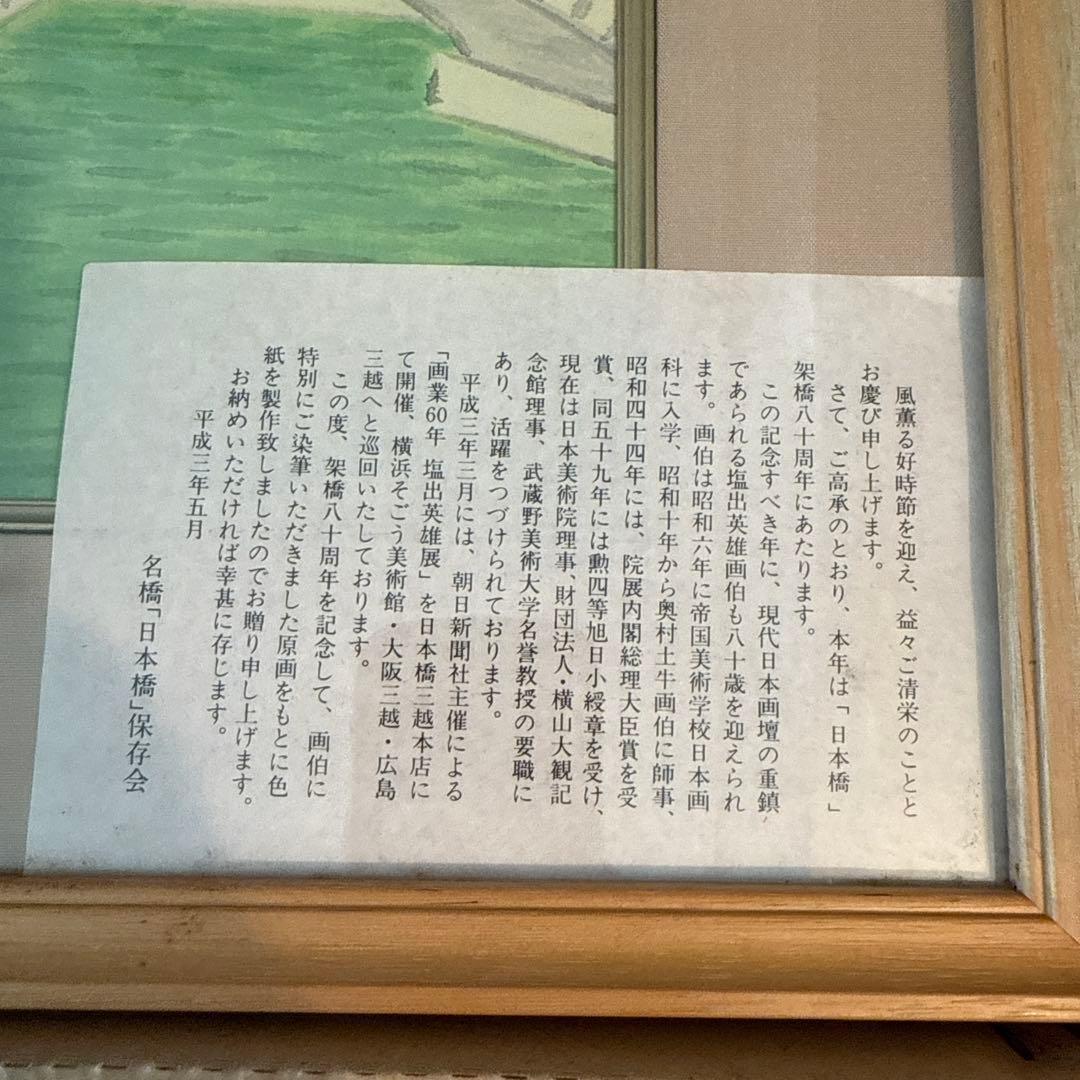 風薫る好時節を迎え、益々ご清栄のことと
お慶び申し上げます。
さて、ご高承のとおり、本年は「日本橋」
架橋八十周年にあたります。
この記念すべき年に、現代日本画壇の重鎮
であられる塩出英雄画伯も八十歳を迎えられ
ます。画伯は昭和六年に帝国美術学校日本画
科に入学、昭和十年から奥村土牛画伯に師事、
昭和四十四年には、院展内閣総理大臣賞を受
賞、同五十九年には勲四等旭日小綬章を受け、
現在は日本美術院理事、財団法人・横山大観記
念館理事、武蔵野美術大学名誉教授の要職に
あり、活躍をつづけられております。
平成三年三月には、朝日新聞社主催による
「画業60年 塩出英雄展」を日本橋三越本店に
て開催、横浜そごう美術館・大阪三越・広島
三越へと巡回いたしております。
この度、架橋八十周年を記念して、画伯に
特別にご染筆いただきました原画をもとに色
紙を製作致しましたのでお贈り申し上げます。
お納めいただければ幸甚に存じます。
平成三年五月
名橋「日本橋」保存会